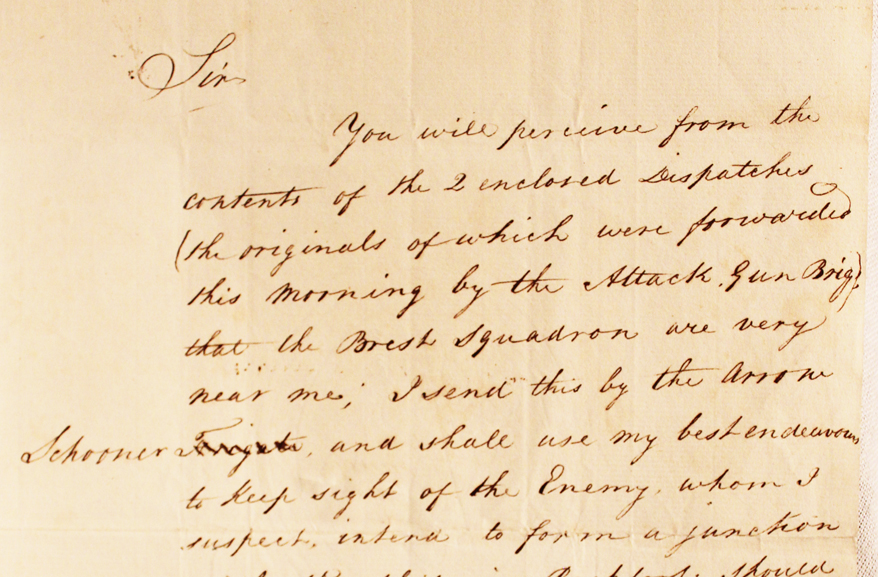 Sir
You will perceive from the
contents of the 2 enclosed Dispatches
(the originals of which were forwarded
this morning by the Attack Gun Brig)
that the Brest Squadron are very
near me; I send this by the Arrow
Schooner Frigate, and shall use my best endeavours
to keep sight of the Enemy, whom I
suspect, intend to form a junction
should